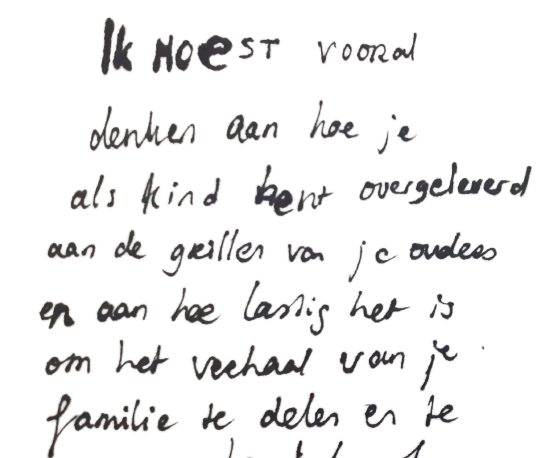 Ik moest vooral
denken aan hoe je
als kind bent overgeleverd
aan de grillen van je ouders
en aan hoe lastig het is
om het verhaal van je
familie te delen en te